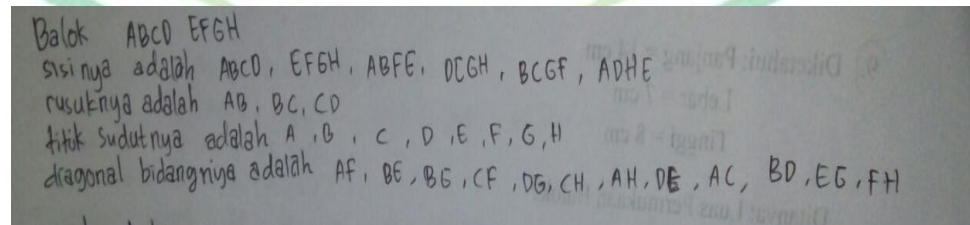 Balok ABCD EFGH
sisinya adalah ABCD, EFGH, ABFE, DCGH, BCGF, ADHE
rusuknya adalah AB, BC, CD
titik sudutnya adalah A, B, C, D, E, F, G, H
diagonal bidangnya adalah AF, BE, BG, CF, DG, CH, AH, DE, AC, BD, EG, FH